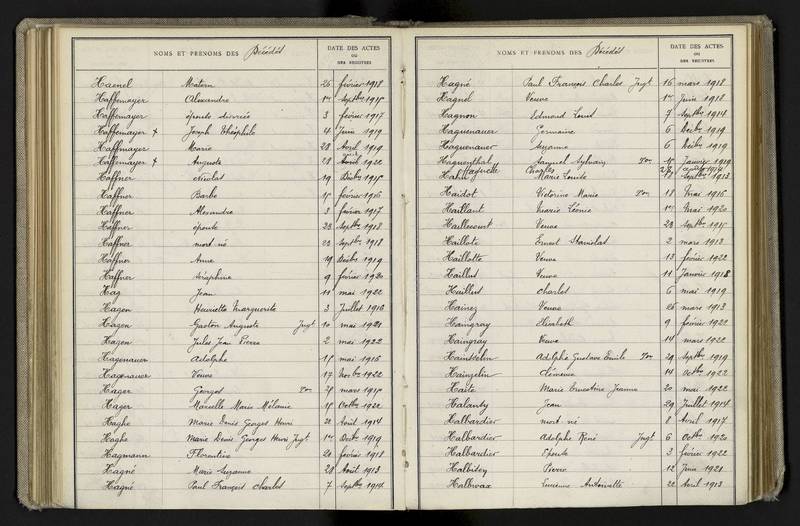 NOMS ET PRENOMS DES Décédés
DATE DES ACTES
OU
DES REGISTRES
Haenel Matern 26 février 1918
Haffemayer Alexandre 1er Septbre 1915
Haffemayer épouse 3 février 1917
Haffemayer x Joseph Théophile 4 Juin 1919
Haffmayer Marie 28 Avril 1919
Haffemayer x Auguste 28 Avril 1922
Haffner Nicolas 19 Décbre 1915
Haffner Barbe 15 février 1916
Haffner Alexandre 3 février 1917
Haffner épouse 23 Septbre 1918
Haffner mort né 23 Septbre 1918
Haffner Anne 19 Décbre 1919
Haffner Séraphine 9 février 1920
Hag Jean 11 mai 1922
Hagen Henriette Marguerite 3 Juillet 1916
Hagen Gaston Auguste Jugt 10 mai 1921
Hagen Jules Jean Pierre 2 mai 1922
Hagenauer Adolphe 15 mai 1916
Hagenauer Veuve 17 Novbre 1922
Hager Georges Ton 25 mars 1915
Hager Marcelle Marie Mélanie 15 Octbre 1922
Haghe Marie Denis Georges Henri 20 Août 1914
Haghe Marie Denis Georges Henri Jugt 1er Décbre 1919
Hagmann Florentine 20 février 1918
Hagné Marie Suzanne 28 Août 1913
Hagné Paul François Charles 7 Septbre 1914
NOMS ET PRENOMS DES Décédés
DATE DES ACTES
OU
DES REGISTRES
Hagné Paul François Charles Jugt 16 mars 1918
Hagné Veuve 1er Juin 1918
Hagnon Edmond Louis 7 Septbre 1914
Haguenauer Germaine 6 Décbre 1919
Haguenauer Suzanne 6 Décbre 1919
Haguenthal Samuel Sylvain Ton Janvier 1919
Haguette Charles
Marie Louise Septbre 1913
Haidot Victorine Marie Ton 18 Mai 1915
Haillant Marie Léonie 1er Mai 1920
Haillecourt Veuve 23 Septbre 1915
Haillote Ernest Stanislas 2 mars 1913
Haillotte Veuve 13 février 1922
Haillud Veuve 11 Janvier 1918
Haillud Charles 6 mai 1919
Hainez Veuve 26 mars 1913
Haingray Elisabeth 9 février 1922
Haingray Veuve 14 mars 1922
Hainsselin Adolphe Gustave Emile Ton 29 Septbre 1919
Hainzelin Clémence 14 Octbre 1922
Haite Marie Ernestine Jeanne 20 mai 1922
Halanty Jean 29 Juillet 1914
Halbardier mort né 8 Avril 1917
Halbardier Adolphe René Jugt 6 Octbre 1920
Halbardier Epouse 3 février 1922
Halbisey Pierre 12 Juin 1921
Halbwax Lucienne Antoinette 22 Avril 1913